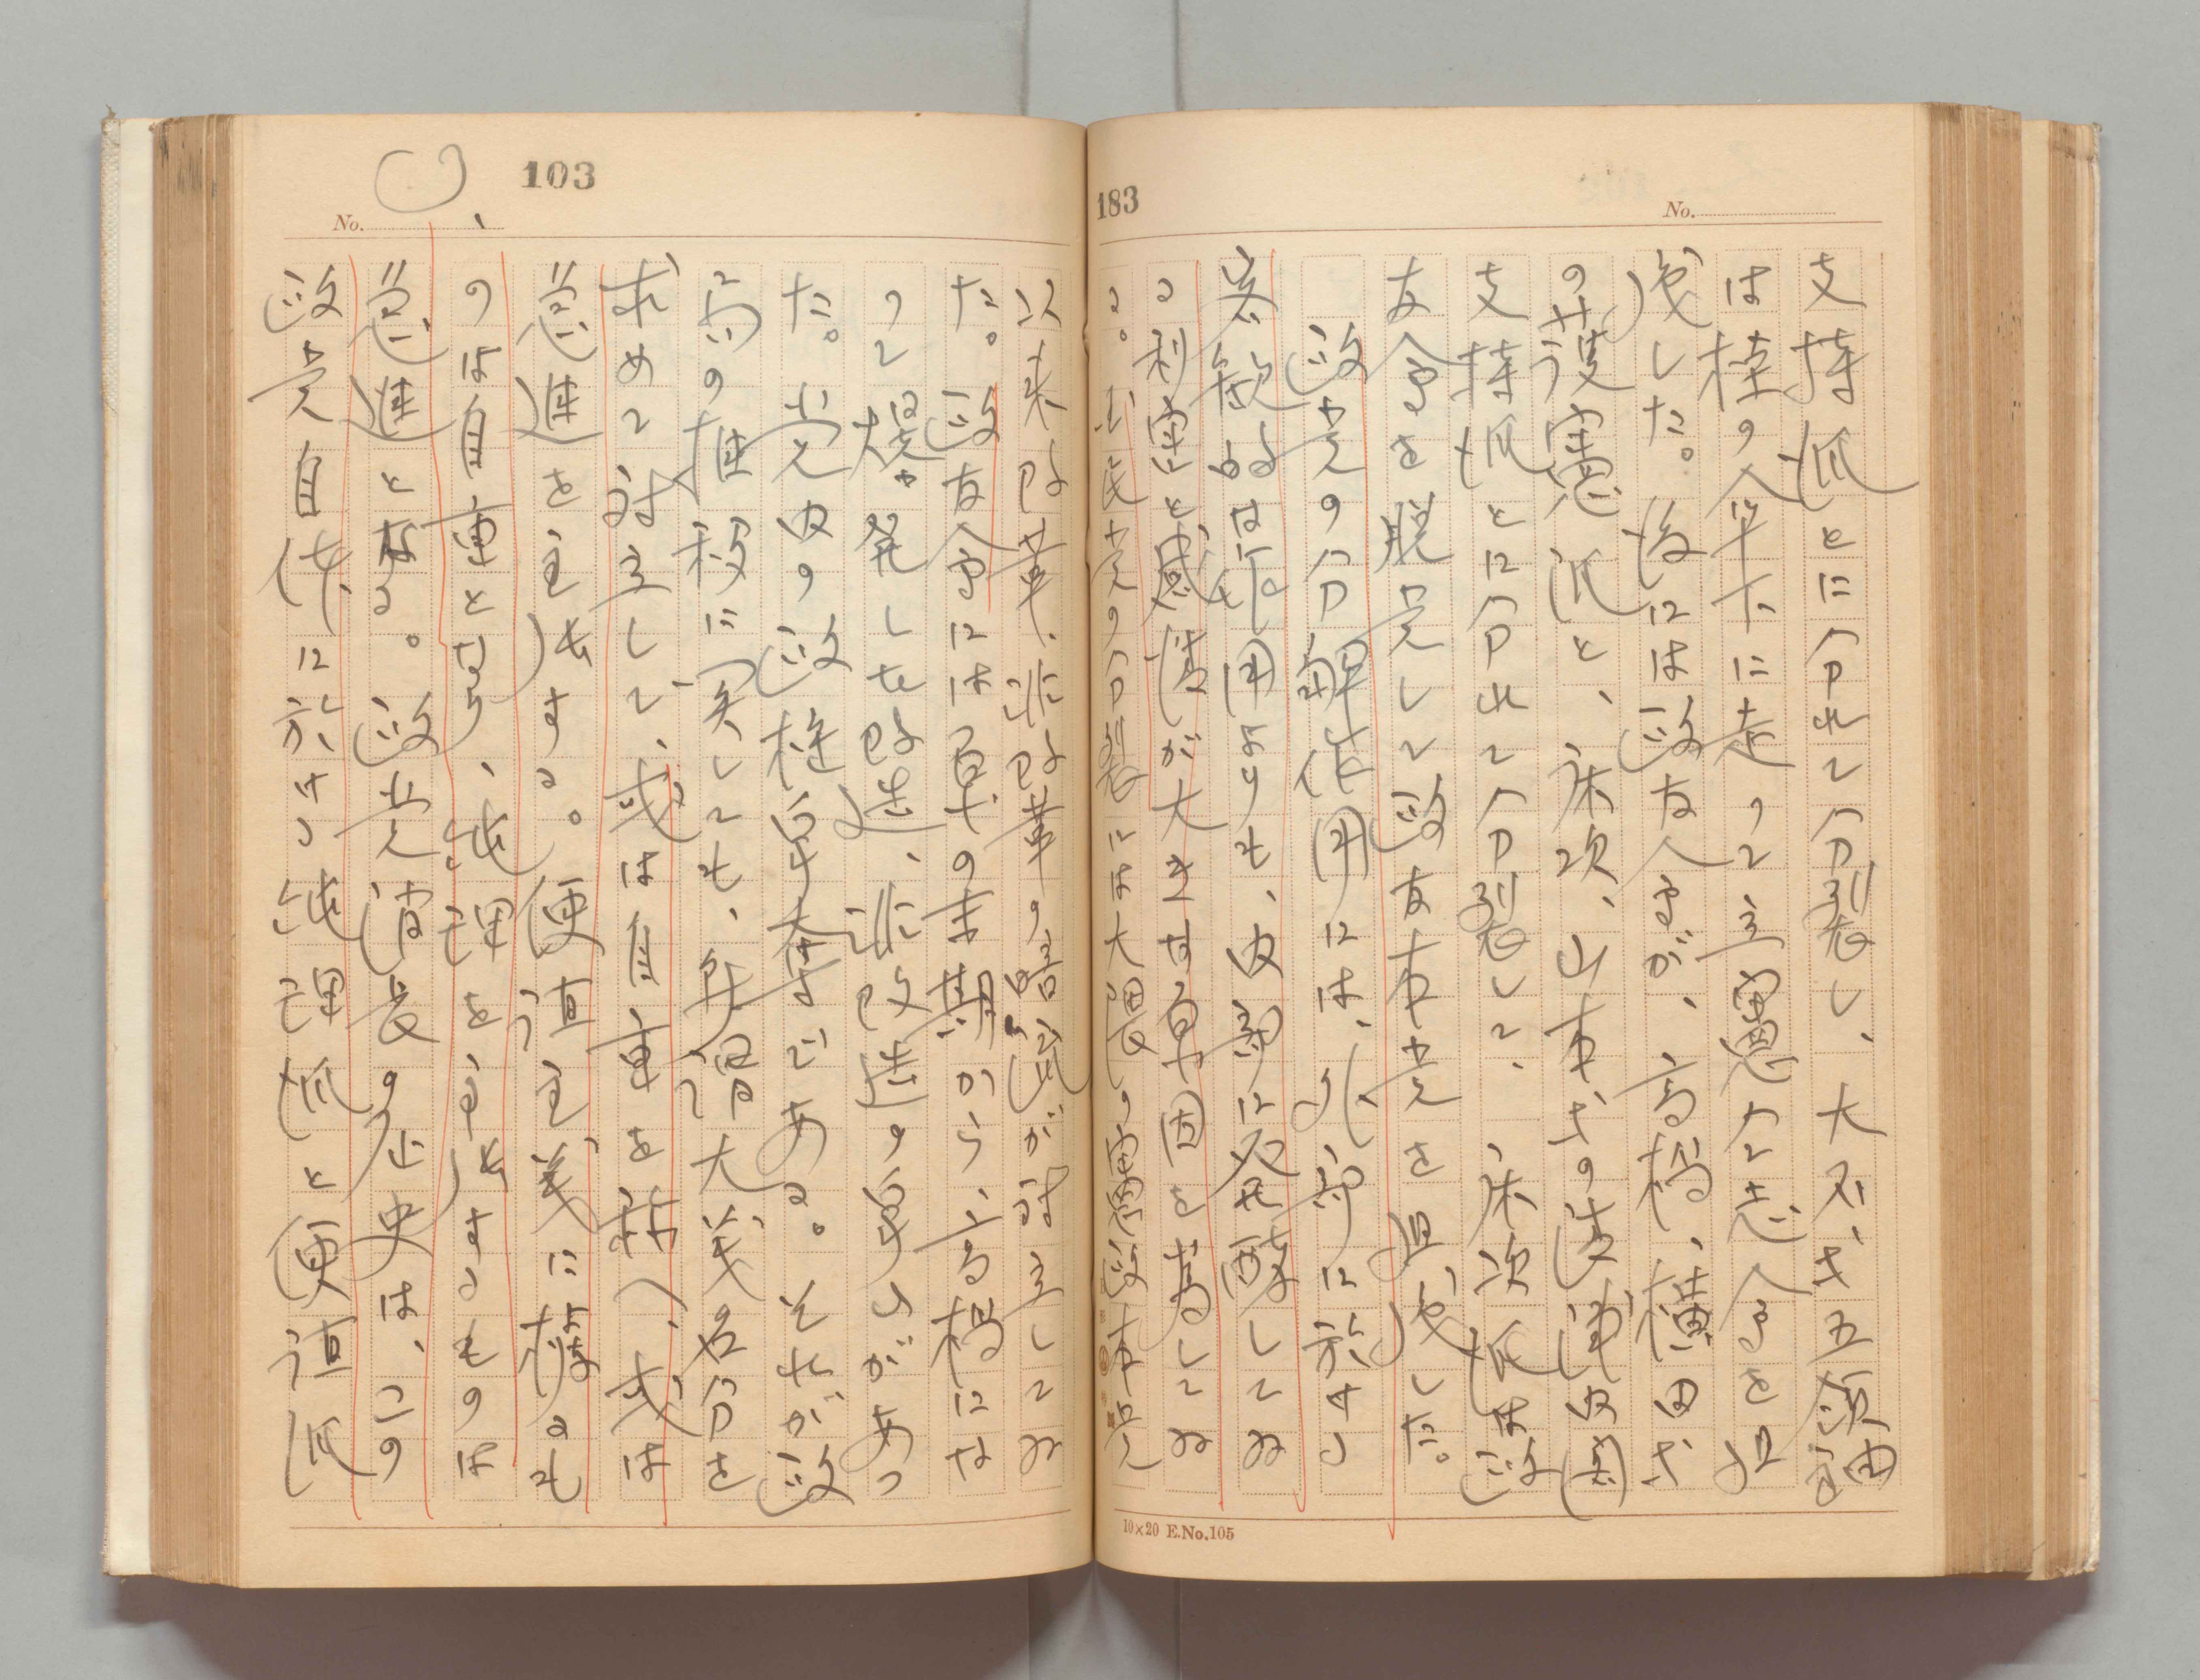 183
No.
支持派とに分れて分裂し、大石、武五領袖
は桂の傘下に走つて立憲同志会を組
織した。後には政友会が、高橋、横田等
の護憲派と、床次、山本等の清浦内閣
支持派とに分れて分裂して、床次派は政
友会を脱党して政友本党を組織した。
政党の分解作用には、外部に於ける
客観的な作用よりも、内訌に発酵してゐ
る利害と感情が大きな原因を為してゐ
る。国民党の分裂には大隈の憲政本党
10×20 E.No.105
103
No.
以来改革、非改革の暗流が対立してゐ
た。政友会には原の末期から、高橋にな
つて爆発した改造、非改造の争ひがあつ
た。党内の政権争奪である。それが政
局の推移に関しても、角逐大義名分を
求めて対立して、或は自重を称へ、或は
急進を主張する。便宜主義に傾るも
のは自重となり、純理を主張するものは
急進となる。政党消長の歴史は、この
政党自体に於ける純理派と便宜派